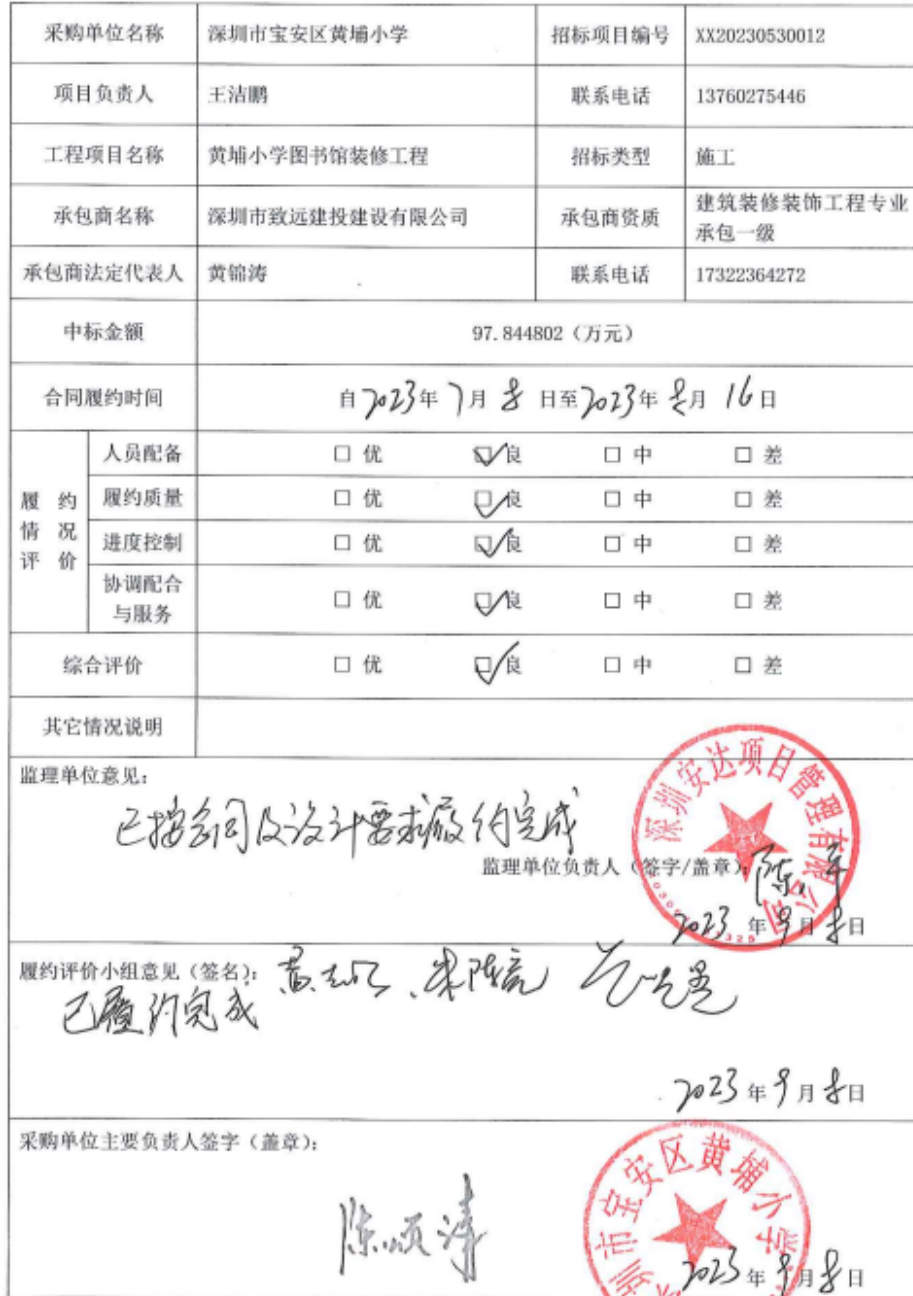 采购单位名称 深圳市宝安区黄埔小学 招标项目编号 XX20230530012
项目负责人 王洁鹏 联系电话 13760275446
工程项目名称 黄埔小学图书馆装修工程 招标类型 施工
承包商名称 深圳市致远建投建设有限公司 承包商资质 建筑装修装饰工程专业
承包一级
承包商法定代表人 黄锦涛 联系电话 17322364272
中标金额 97.844802（万元）
合同履约时间 自2023年7月8日至2023年8月16日
履约情况评价
人员配备 □优 ☑良 □中 □差
履约质量 □优 ☑良 □中 □差
进度控制 □优 ☑良 □中 □差
协调配合
与服务 □优 ☑良 □中 □差
综合评价 □优 ☑良 □中 □差
其它情况说明
监理单位意见：
已按合同及设计要求履约完成
深圳安达项目管理有限公司
监理单位负责人（签字/盖章）：
2023年9月8日
履约评价小组意见（签名）：
已履约完成
2023年9月8日
采购单位主要负责人签字（盖章）：
陈颂涛
深圳市宝安区黄埔小学
2023年9月8日